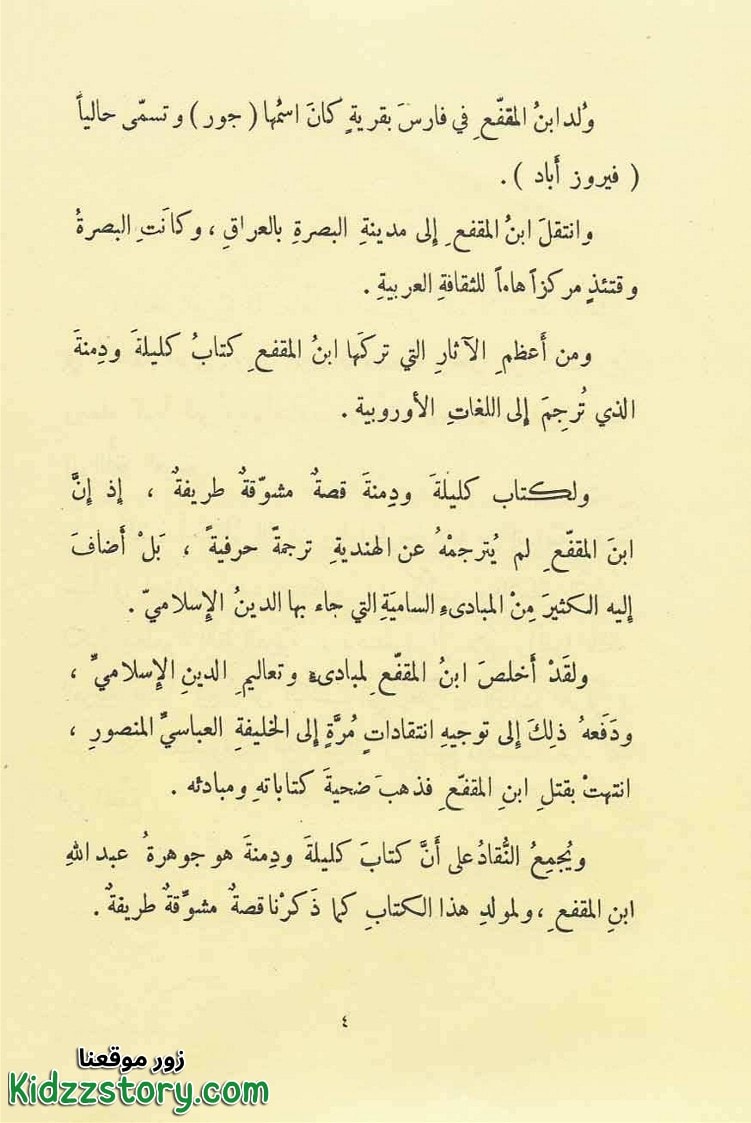 وُلد ابنُ المقفّعِ في فارسَ بقريةٍ كانَ اسمُها ( جور ) وتسمّى حالياً
( فيروز أباد ) .
وانتقلَ ابنُ المقفعِ إلى مدينةِ البصرةِ بالعراقِ ، وكانَتِ البصرةُ
وقتئذٍ مركزاً هاماً للثقافةِ العربيةِ .
ومن أَعظمِ الآثارِ التي تركَها ابنُ المقفعِ كتابُ كليلةَ ودِمنةَ
الذي تُرجِمَ إلى اللغاتِ الأوروبية .
ولكتاب كليلةَ ودِمنةَ قصةٌ مشوّقةٌ طريفةٌ ، إذ إنَّ
ابنَ المقفّعِ لم يُترجمْهُ عن الهنديةِ ترجمةً حرفيةً ، بَلْ أضافَ
إليه الكثيرَ مِنْ المبادىءِ الساميَةِ التي جاء بها الدينُ الإسلاميّ .
ولقَدْ أخلصَ ابنُ المقفّعِ لمبادىءِ وتعاليمِ الدينِ الإسلاميِّ ،
ودَفَعهُ ذلِكَ إلى توجيهِ انتقاداتٍ مُرَّةٍ إلى الخليفةِ العباسيِّ المنصورِ ،
انتهتْ بقتلِ ابنِ المقفّعِ فذهبَ ضحيةَ كتاباتهِ ومبادئه .
ويُجمِعُ النُّقادُ على أَنَّ كتابَ كليلةَ ودِمنةَ هو جوهرةُ عبد اللهِ
ابنِ المقفعِ ، ولمولدِ هذا الكتابِ كما ذَكرْنا قصةٌ مشوِّقةٌ طريفةٌ .
٤
زور موقعنا
Kidzzstory.com